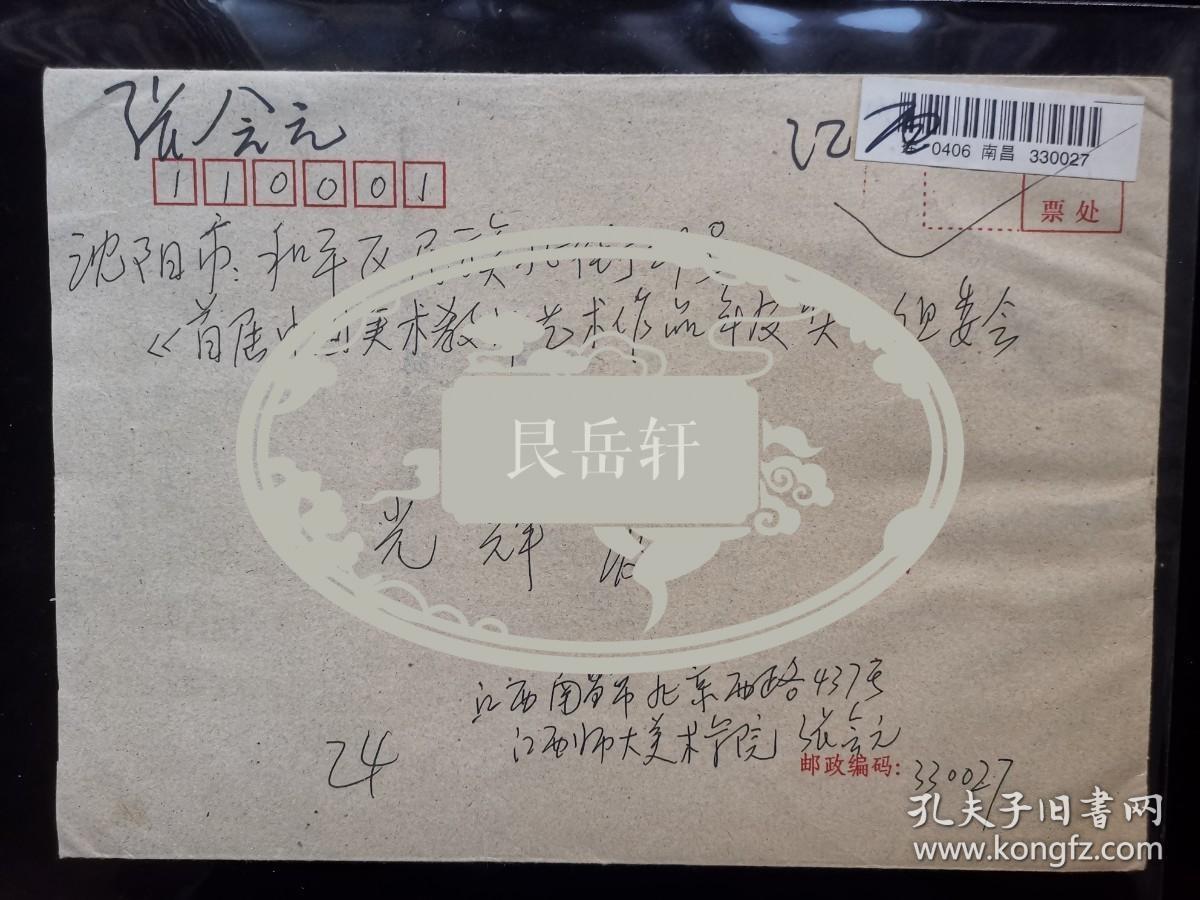 张会元
江西
0406 南昌 330027
110001
票处
沈阳市:和平区
《首届中国美术教 艺术作品年度奖 组委会
艮岳轩
光辉
江西南昌市北京西路437号
江西师大美术学院 张会元
24
邮政编码: 330027
孔夫子旧书网
www.kongfz.com